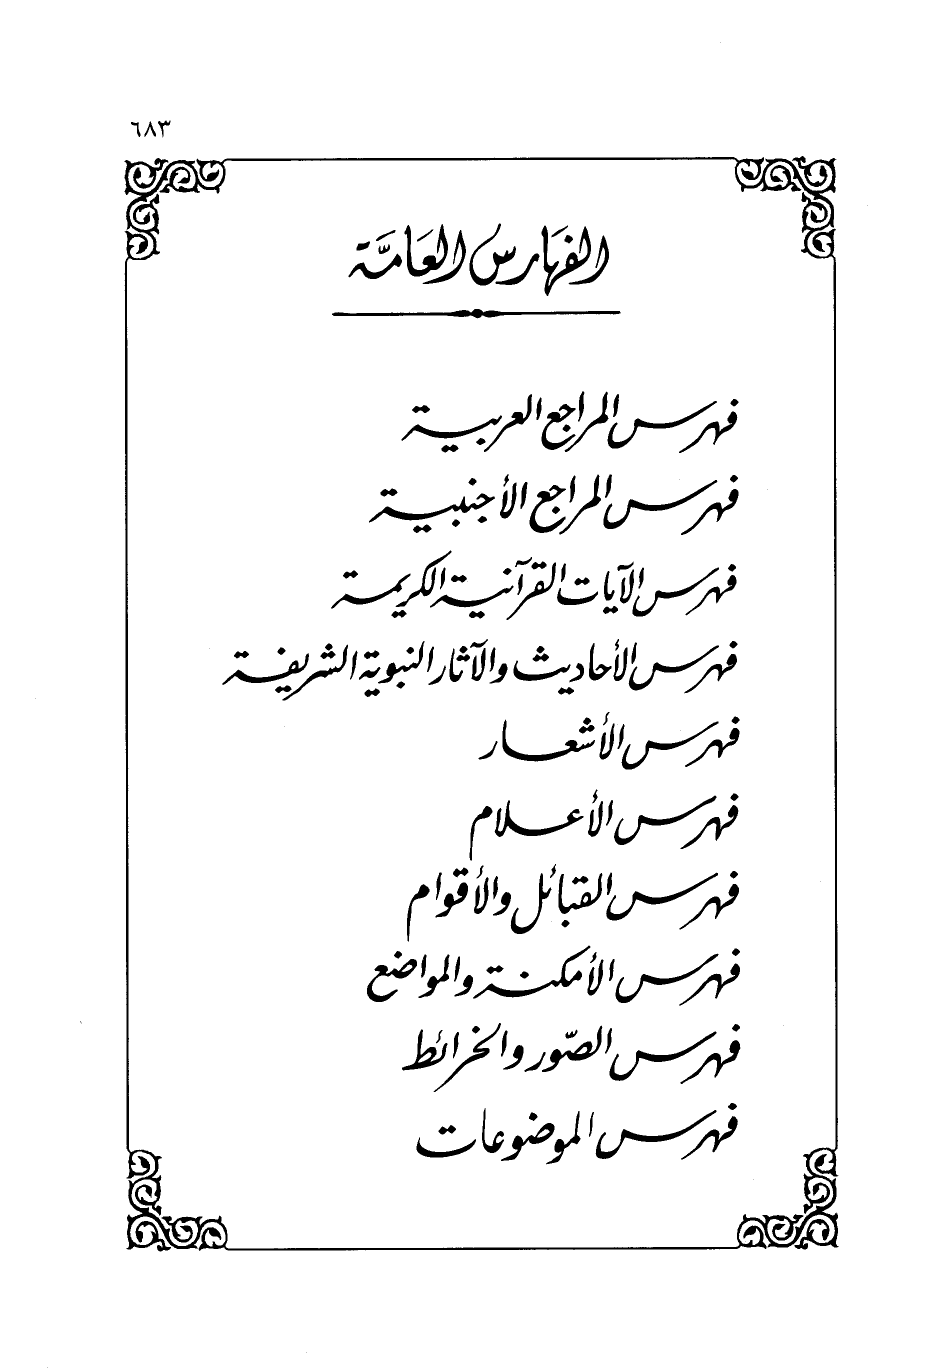 ٦٨٣
الفهَارس العَامَّة
فهرس المراجع العربية
فهرس المراجع الأجنبية
فهرس الآيات القرآنية الكريمة
فهرس الأحاديث والآثار النبوية الشريفة
فهرس الأشعار
فهرس الأعلام
فهرس القبائل والأقوام
فهرس الأمكنة والمواضع
فهرس الصّور والخرائط
فهرس الموضوعات